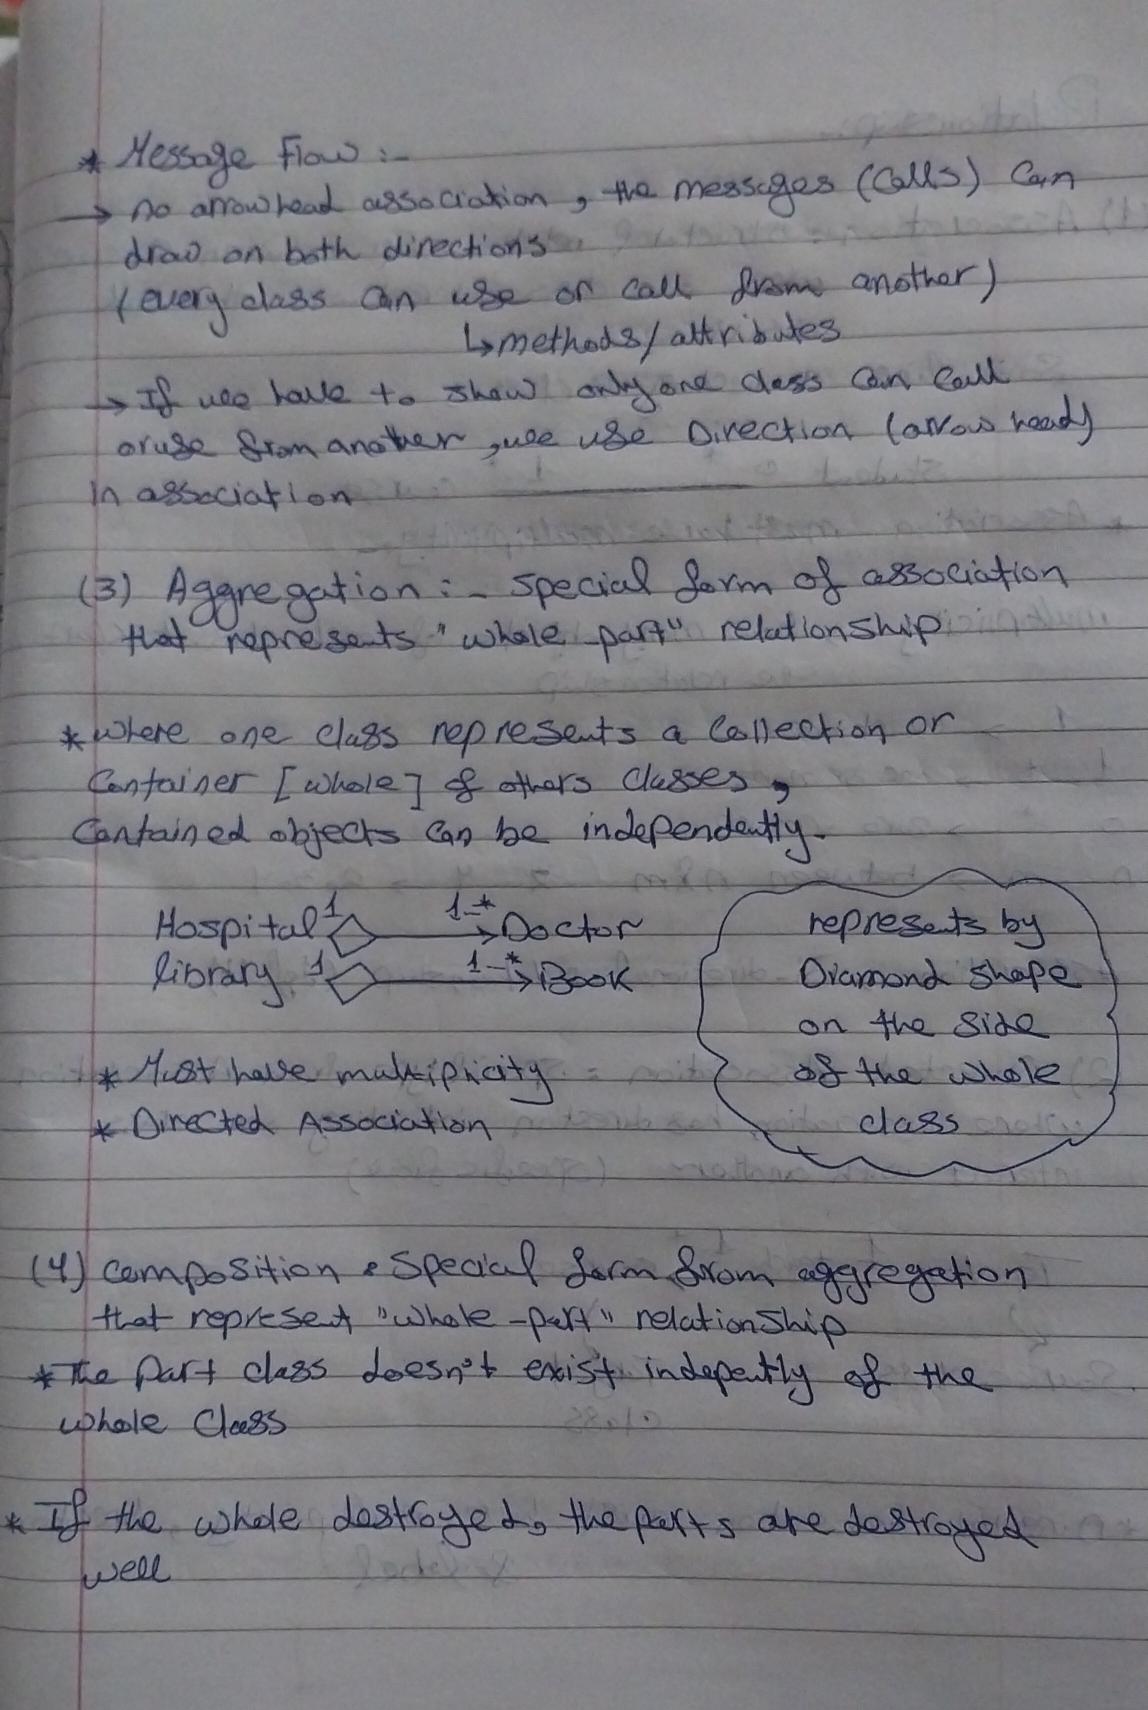 * Message Flow :-
→ no arrowhead association, the messages (calls) can
draw on both directions
(every class can use or call from another)
↳ methods/attributes
→ If we have to show only one class can call
or use from another, we use Direction (arrow head)
in association
(3) Aggregation :- special form of association
that represents "whole part" relationship
* where one class represents a collection or
Container [whole] of others classes,
Contained objects can be independently.
Hospital 1 ◇→ 1-* Doctor
library 1 ◇→ 1-* Book
represents by
Diamond shape
on the side
of the whole
class
* Must have multiplicity
* Directed Association
(4) composition : special form from aggregation
that represent "whole-part" relationship
* The part class doesn't exist indepently of the
whole class
* If the whole destroyed, the parts are destroyed
well